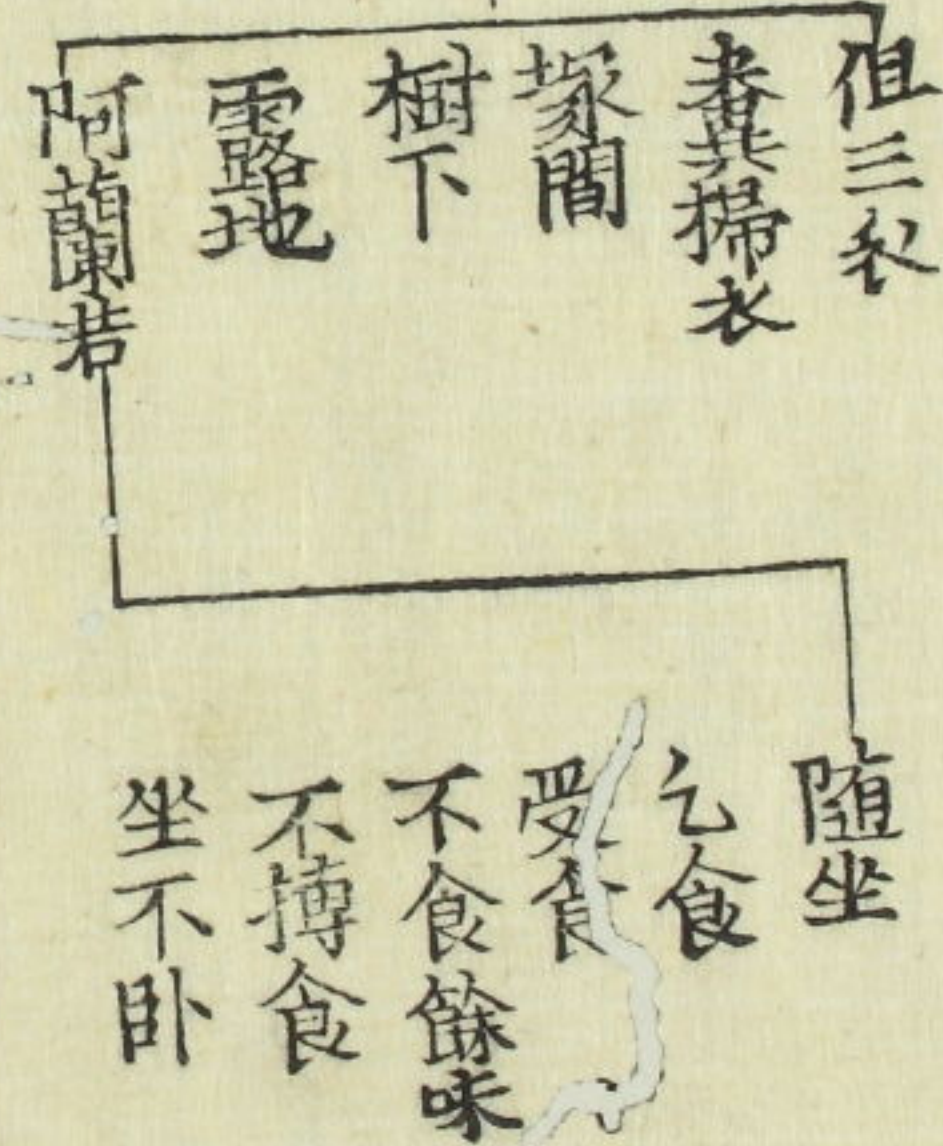 但三衣
糞掃衣
塚間
樹下
露地
阿蘭若
随坐
乞食
受食
不食餘味
不摶食
坐不卧